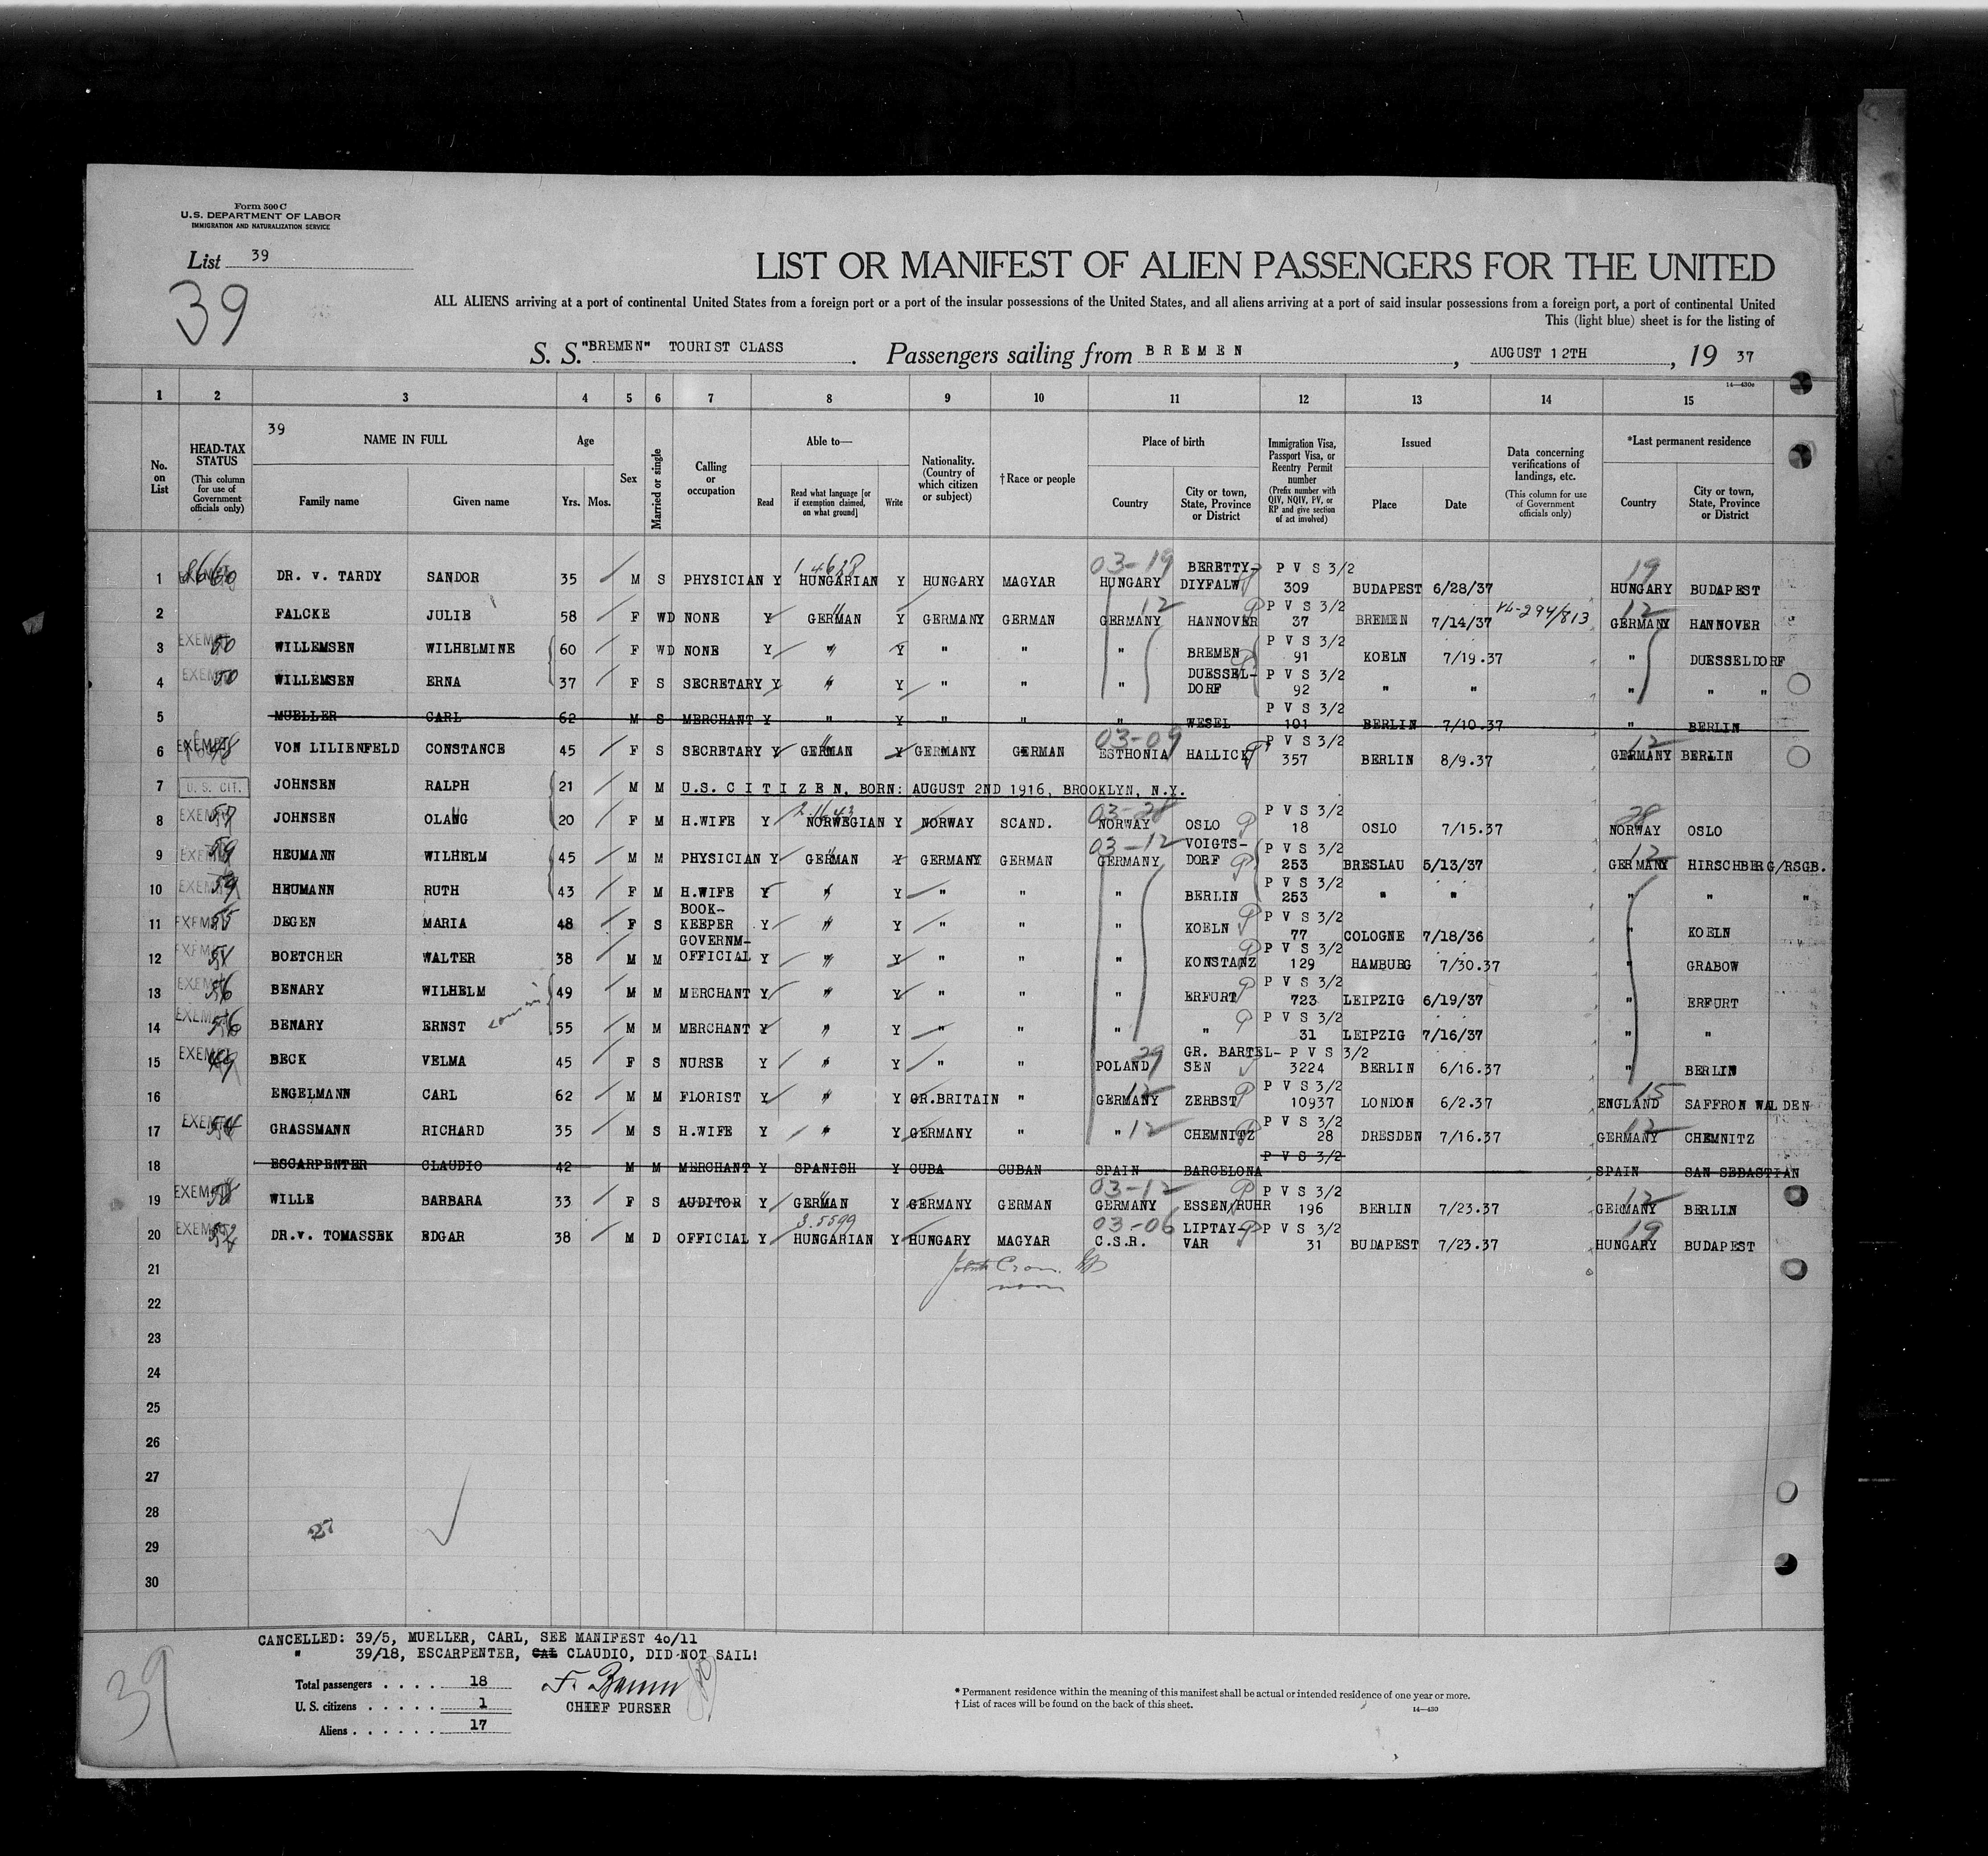 Form 500 C
U.S. DEPARTMENT OF LABOR
IMMIGRATION AND NATURALIZATION SERVICE
List 39
39
LIST OR MANIFEST OF ALIEN PASSENGERS FOR THE UNITED
ALL ALIENS arriving at a port of continental United States from a foreign port or a port of the insular possessions of the United States, and all aliens arriving at a port of said insular possessions from a foreign port, a port of continental United
This (light blue) sheet is for the listing of
S. S. "BREMEN" TOURIST CLASS. Passengers sailing from BREMEN, AUGUST 12TH, 19 37
14—430e
1 2 3 4 5 6 7 8 9 10 11 12 13 14 15
No. on List
HEAD-TAX STATUS (This column for use of Government officials only)
39 NAME IN FULL
Family name Given name
Age
Yrs. Mos.
Sex
Married or single
Calling or occupation
Able to—
Read
Read what language [or if exemption claimed, on what ground]
Write
Nationality. (Country of which citizen or subject)
†Race or people
Place of birth
Country
City or town, State, Province or District
Immigration Visa, Passport Visa, or Reentry Permit number (Prefix number with QIV, NQIV, PV, or RP and give section of act involved)
Issued
Place Date
Data concerning verifications of landings, etc. (This column for use of Government officials only)
*Last permanent residence
Country
City or town, State, Province or District
1 DR. v. TARDY SANDOR 35 M S PHYSICIAN Y HUNGARIAN Y HUNGARY MAGYAR 03-19 HUNGARY BERETTY-DIYFALW P V S 3/2 309 BUDAPEST 6/28/37 19 HUNGARY BUDAPEST
2 FALCKE JULIE 58 F WD NONE Y GERMAN Y GERMANY GERMAN 12 GERMANY HANNOVER P V S 3/2 37 BREMEN 7/14/37 12 GERMANY HANNOVER "
3 EXEMPT 50 WILLEMSEN WILHELMINE 60 F WD NONE Y " Y " " " BREMEN P V S 3/2 91 KOELN 7/19.37 " DUESSELDORF
4 EXEMPT 50 WILLEMSEN ERNA 37 F S SECRETARY Y " Y " " " DUESSEL-DORF P V S 3/2 92 " " " " "
5 MUELLER CARL 62 M S MERCHANT Y " Y " " " WESEL P V S 3/2 101 BERLIN 7/10.37 " BERLIN
6 EXEMPT VON LILIENFELD CONSTANCE 45 F S SECRETARY Y GERMAN Y GERMANY GERMAN 03-09 ESTHONIA HALLICK P V S 3/2 357 BERLIN 8/9.37 12 GERMANY BERLIN
7 U. S. CIT. JOHNSEN RALPH 21 M M U.S. C I T I Z E N, BORN: AUGUST 2ND 1916, BROOKLYN, N.Y.
8 EXEMPT 57 JOHNSEN OLAUG 20 F M H.WIFE Y NORWEGIAN Y NORWAY SCAND. 03-28 NORWAY OSLO P V S 3/2 18 OSLO 7/15.37 28 NORWAY OSLO
9 EXEMPT 59 HEUMANN WILHELM 45 M M PHYSICIAN Y GERMAN Y GERMANY GERMAN 03-12 GERMANY VOIGTS-DORF P V S 3/2 253 BRESLAU 5/13/37 12 GERMANY HIRSCHBERG/RSGB.
10 EXEMPT 59 HEUMANN RUTH 43 F M H.WIFE Y " Y " " " BERLIN P V S 3/2 253 " " " " "
11 EXEMPT 55 DEGEN MARIA 48 F S BOOK-KEEPER Y " Y " " " KOELN P V S 3/2 77 COLOGNE 7/18/36 " KOELN
12 EXEMPT 51 BOETCHER WALTER 38 M M GOVERNM-OFFICIAL Y " Y " " " KONSTANZ P V S 3/2 129 HAMBURG 7/30.37 " GRABOW
13 EXEMPT 56 BENARY WILHELM 49 M M MERCHANT Y " Y " " " ERFURT P V S 3/2 723 LEIPZIG 6/19/37 " ERFURT
14 EXEMPT 56 BENARY ERNST 55 M M MERCHANT Y " Y " " " " P V S 3/2 31 LEIPZIG 7/16/37 " "
15 EXEMPT 49 BECK VELMA 45 F S NURSE Y " Y " " 29 POLAND GR. BARTEL-SEN P V S 3/2 3224 BERLIN 6/16.37 " BERLIN
16 ENGELMANN CARL 62 M M FLORIST Y " Y GR.BRITAIN " 12 GERMANY ZERBST P V S 3/2 10937 LONDON 6/2.37 15 ENGLAND SAFFRON WALDEN
17 EXEMPT 54 GRASSMANN RICHARD 35 M S H.WIFE Y " Y GERMANY " " 12 CHEMNITZ P V S 3/2 28 DRESDEN 7/16.37 12 GERMANY CHEMNITZ
18 ESCARPENTER CLAUDIO 42 M M MERCHANT Y SPANISH Y CUBA CUBAN SPAIN BARCELONA P V S 3/2 SPAIN SAN SEBASTIAN
19 EXEMPT 58 WILLE BARBARA 33 F S AUDITOR Y GERMAN Y GERMANY GERMAN 03-12 GERMANY ESSEN/RUHR P V S 3/2 196 BERLIN 7/23.37 12 GERMANY BERLIN
20 EXEMPT 52 DR.v. TOMASSEK EDGAR 38 M D OFFICIAL Y HUNGARIAN Y HUNGARY MAGYAR 03-06 C.S.R. LIPTAY-VAR P V S 3/2 31 BUDAPEST 7/23.37 19 HUNGARY BUDAPEST
21
22
23
24
25
26
27
28
29
30
27
CANCELLED: 39/5, MUELLER, CARL, SEE MANIFEST 40/11
" 39/18, ESCARPENTER, CAL CLAUDIO, DID NOT SAIL!
39
Total passengers . . . . 18
U. S. citizens . . . . . . 1
Aliens . . . . . . 17
CHIEF PURSER
* Permanent residence within the meaning of this manifest shall be actual or intended residence of one year or more.
† List of races will be found on the back of this sheet.
14—430